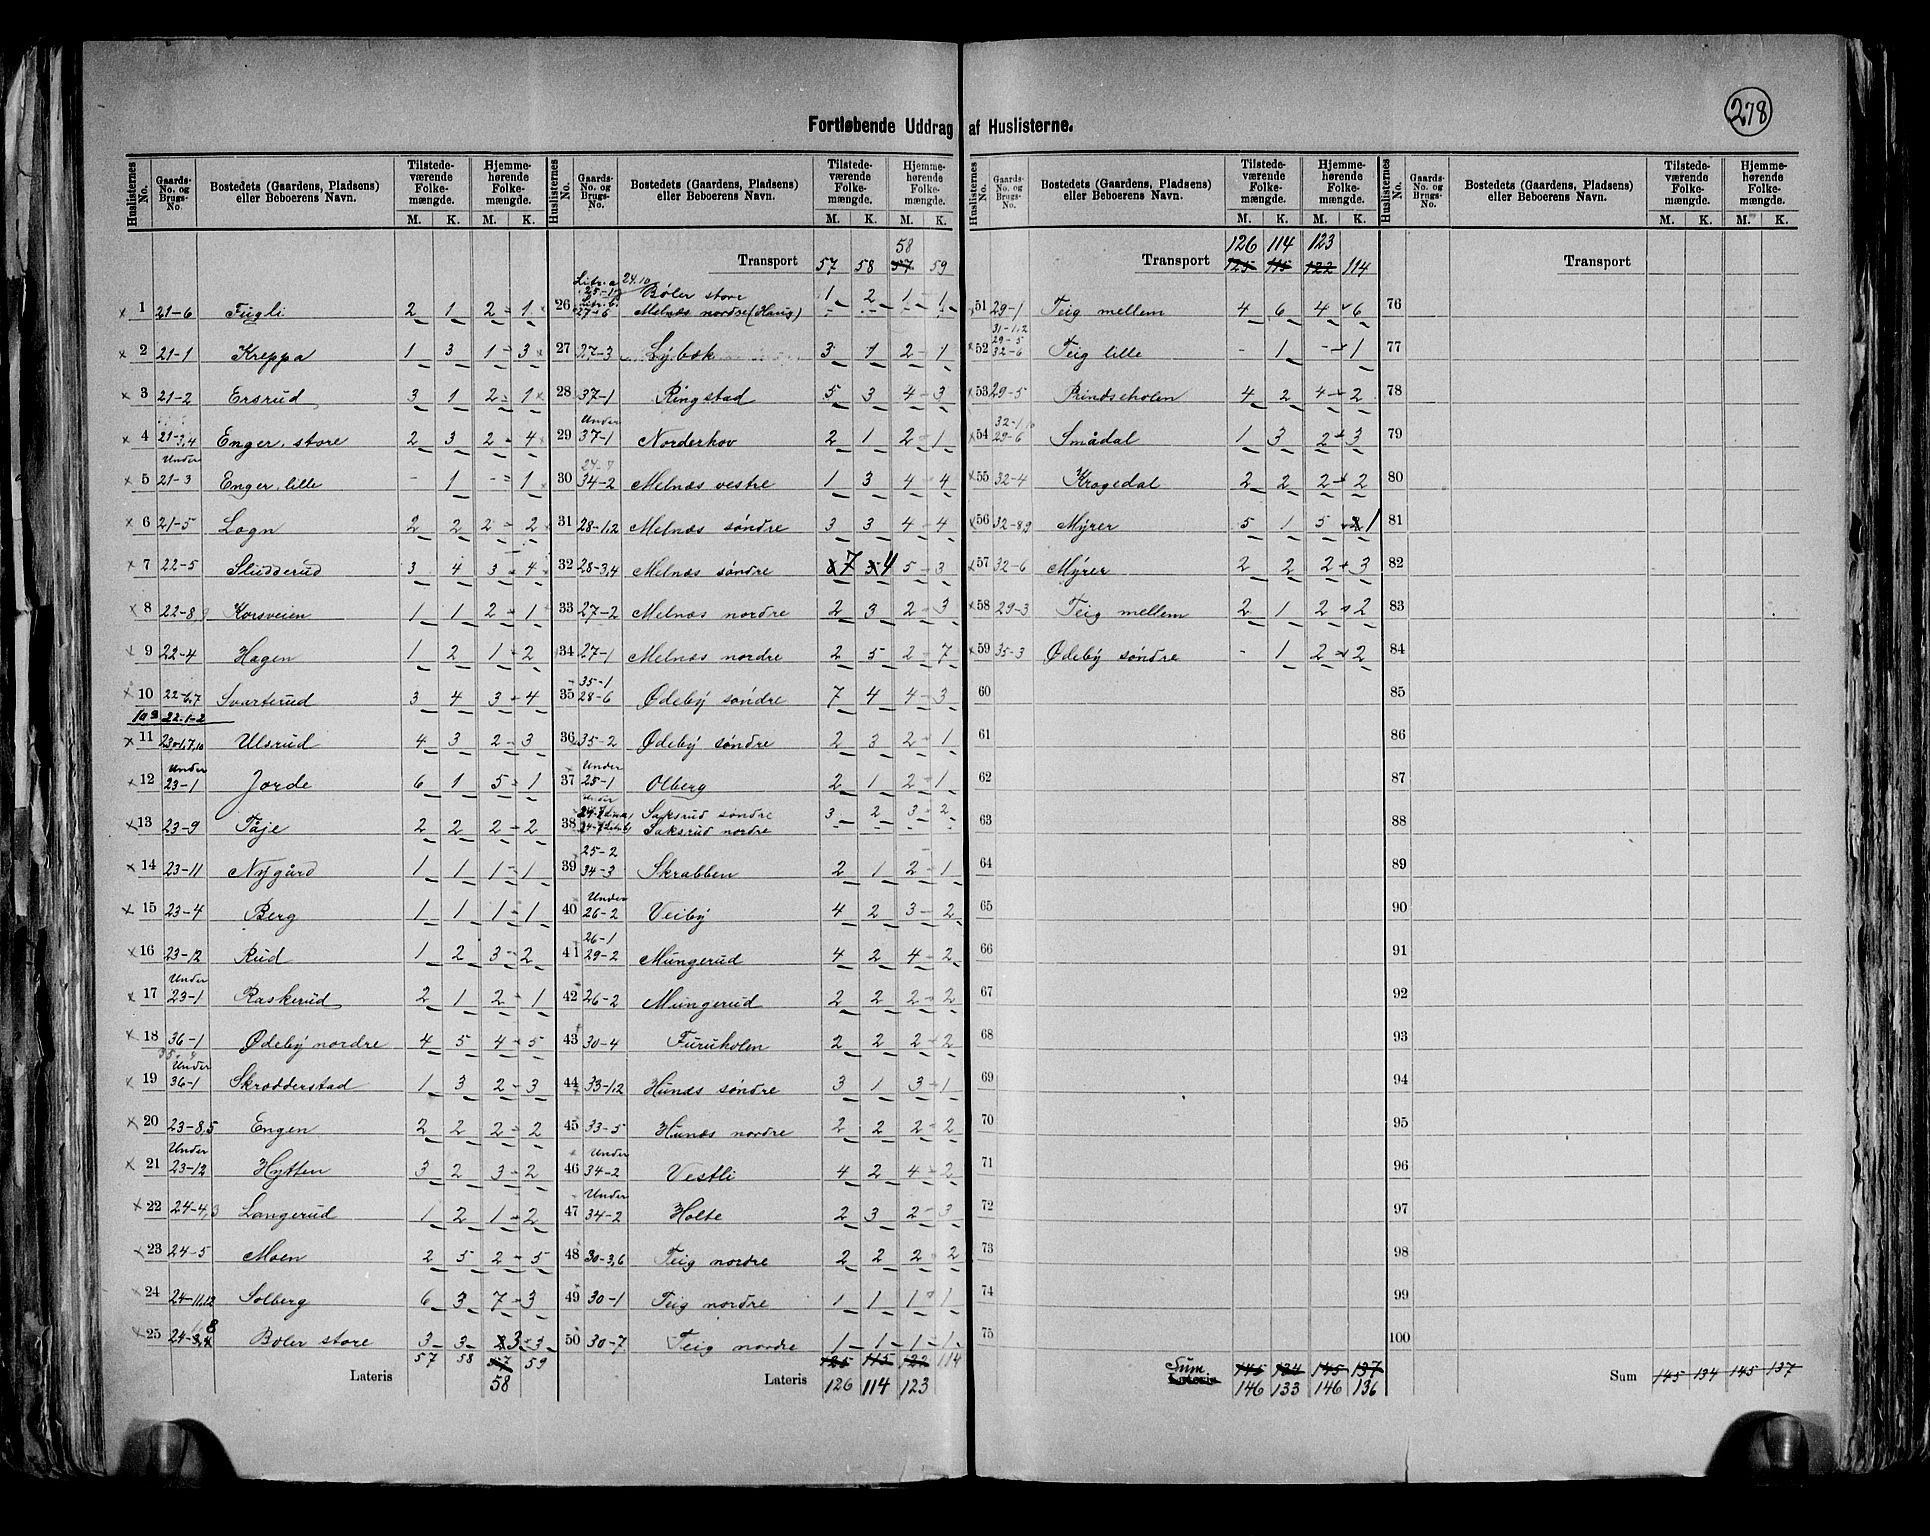 278
Fortløbende Uddrag af Huslisterne.
Huslisternes No. | Gaards-No. og Brugs-No. | Bostedets (Gaardens, Pladsens) eller Beboerens Navn. | Tilstedeværende Folkemængde. M. K. | Hjemmehørende Folkemængde. M. K.
1 21-6 Fugli 2 1 2 1
2 21-1 Kreppa 1 3 1 3
3 21-2 Ersrud 3 1 2 1
4 21-3,4 Enger, store 2 3 2 4
5 Under 21-3 Enger, lille - 1 - 1
6 21-5 Logn 2 2 2 2
7 22-5 Sludderud 3 4 3 4
8 22-8,9 Korsveien 1 1 2 1
9 22-4 Hagen 1 2 1 2
10 22-6,7 Svarterud 3 4 3 4
10a 22.1-2
11 23-1,7,10 Ulsrud 4 3 2 3
12 Under 23-1 Jorde 6 1 5 1
13 23-9 Taje 2 2 2 2
14 23-11 Nygård 1 1 1 1
15 23-4 Berg 1 1 1 1
16 23-12 Rud 1 2 3 2
17 Under 23-1 Raskerud 2 1 2 1
18 36-1 Ødeby nordre 4 5 4 5
19 Under 36-1 Skrødderstad 1 3 2 3
20 23-8,5 Engen 2 2 2 2
21 Under 23-12 Hytten 3 2 3 2
22 24-4,3 Langerud 1 2 1 2
23 24-5 Moen 2 5 2 5
24 24-11,12 Solberg 6 3 7 3
25 24-8 Bøler store 3 3 3 3
57 58 57 59
Lateris 58
Huslisternes No. | Gaards-No. og Brugs-No. | Bostedets (Gaardens, Pladsens) eller Beboerens Navn. | Tilstedeværende Folkemængde. M. K. | Hjemmehørende Folkemængde. M. K.
58
Transport 57 58 57 59
Litr. a 25-1 24.10 Bøler store 1 2 1 1
26 Litr. b 27-6 Melnæs nordre (Haug) - - - -
27 27-3 Lybæk 3 1 2 1
28 37-1 Ringstad 5 3 4 3
29 Under 37-1 Norderhov 2 1 2 1
30 34-2 Melnæs vestre 1 3 4 4
31 28-1,2 Melnæs søndre 3 3 4 4
32 28-3,4 Melnæs søndre 7 4 5 3
33 27-2 Melnæs nordre 2 3 2 3
34 27-1 Melnæs nordre 2 5 2 7
35 35-1 28-6 Ødeby søndre 7 4 4 3
36 35-2 Ødeby søndre 2 3 2 1
37 Under 25-1 Olberg 2 1 2 1
Under 24-7 Saksrud søndre 3 2 3 2
38 24-7 Saksrud nordre - - - -
39 25-2 34-3 Skrabben 2 1 2 1
40 Under 26-2 Veiby 4 2 3 2
41 26-1 29-2 Mungerud 4 2 4 2
42 26-2 Mungerud 2 2 2 2
43 30-4 Furuholen 2 2 2 2
44 33-1,2 Hunæs søndre 3 1 3 1
45 33-5 Hunæs nordre 2 2 2 2
46 Under 34-2 Vestli 4 2 4 2
47 Under 34-2 Holte 2 3 2 3
48 30-3,6 Teig nordre 2 2 2 2
49 30-1 Teig nordre 1 1 1 1
50 30-7 Teig nordre 1 1 1 1
125 115 122 114
Lateris 126 114 123
Huslisternes No. | Gaards-No. og Brugs-No. | Bostedets (Gaardens, Pladsens) eller Beboerens Navn. | Tilstedeværende Folkemængde. M. K. | Hjemmehørende Folkemængde. M. K.
126 114 123
Transport 125 115 122 114
51 29-1 Teig mellem 4 6 4 6
52 31-1,2 29-5 32-6 Teig lille - 1 - 1
53 29-5 Prindseholen 4 2 4 2
54 32-1 29-6 Smådal 1 3 2 3
55 32-4 Kragedal 2 2 2 2
56 32-8,9 Myrer 5 1 5 1
57 32-6 Myrer 2 2 2 3
58 29-3 Teig mellem 2 1 2 2
59 35-3 Ødeby søndre - 1 2 2
60
61
62
63
64
65
66
67
68
69
70
71
72
73
74
75
Sum 145 134 145 137
Lateris 146 133 146 136
Huslisternes No. | Gaards-No. og Brugs-No. | Bostedets (Gaardens, Pladsens) eller Beboerens Navn. | Tilstedeværende Folkemængde. M. K. | Hjemmehørende Folkemængde. M. K.
Transport
76
77
78
79
80
81
82
83
84
85
86
87
88
89
90
91
92
93
94
95
96
97
98
99
100
Sum 145 134 145 137